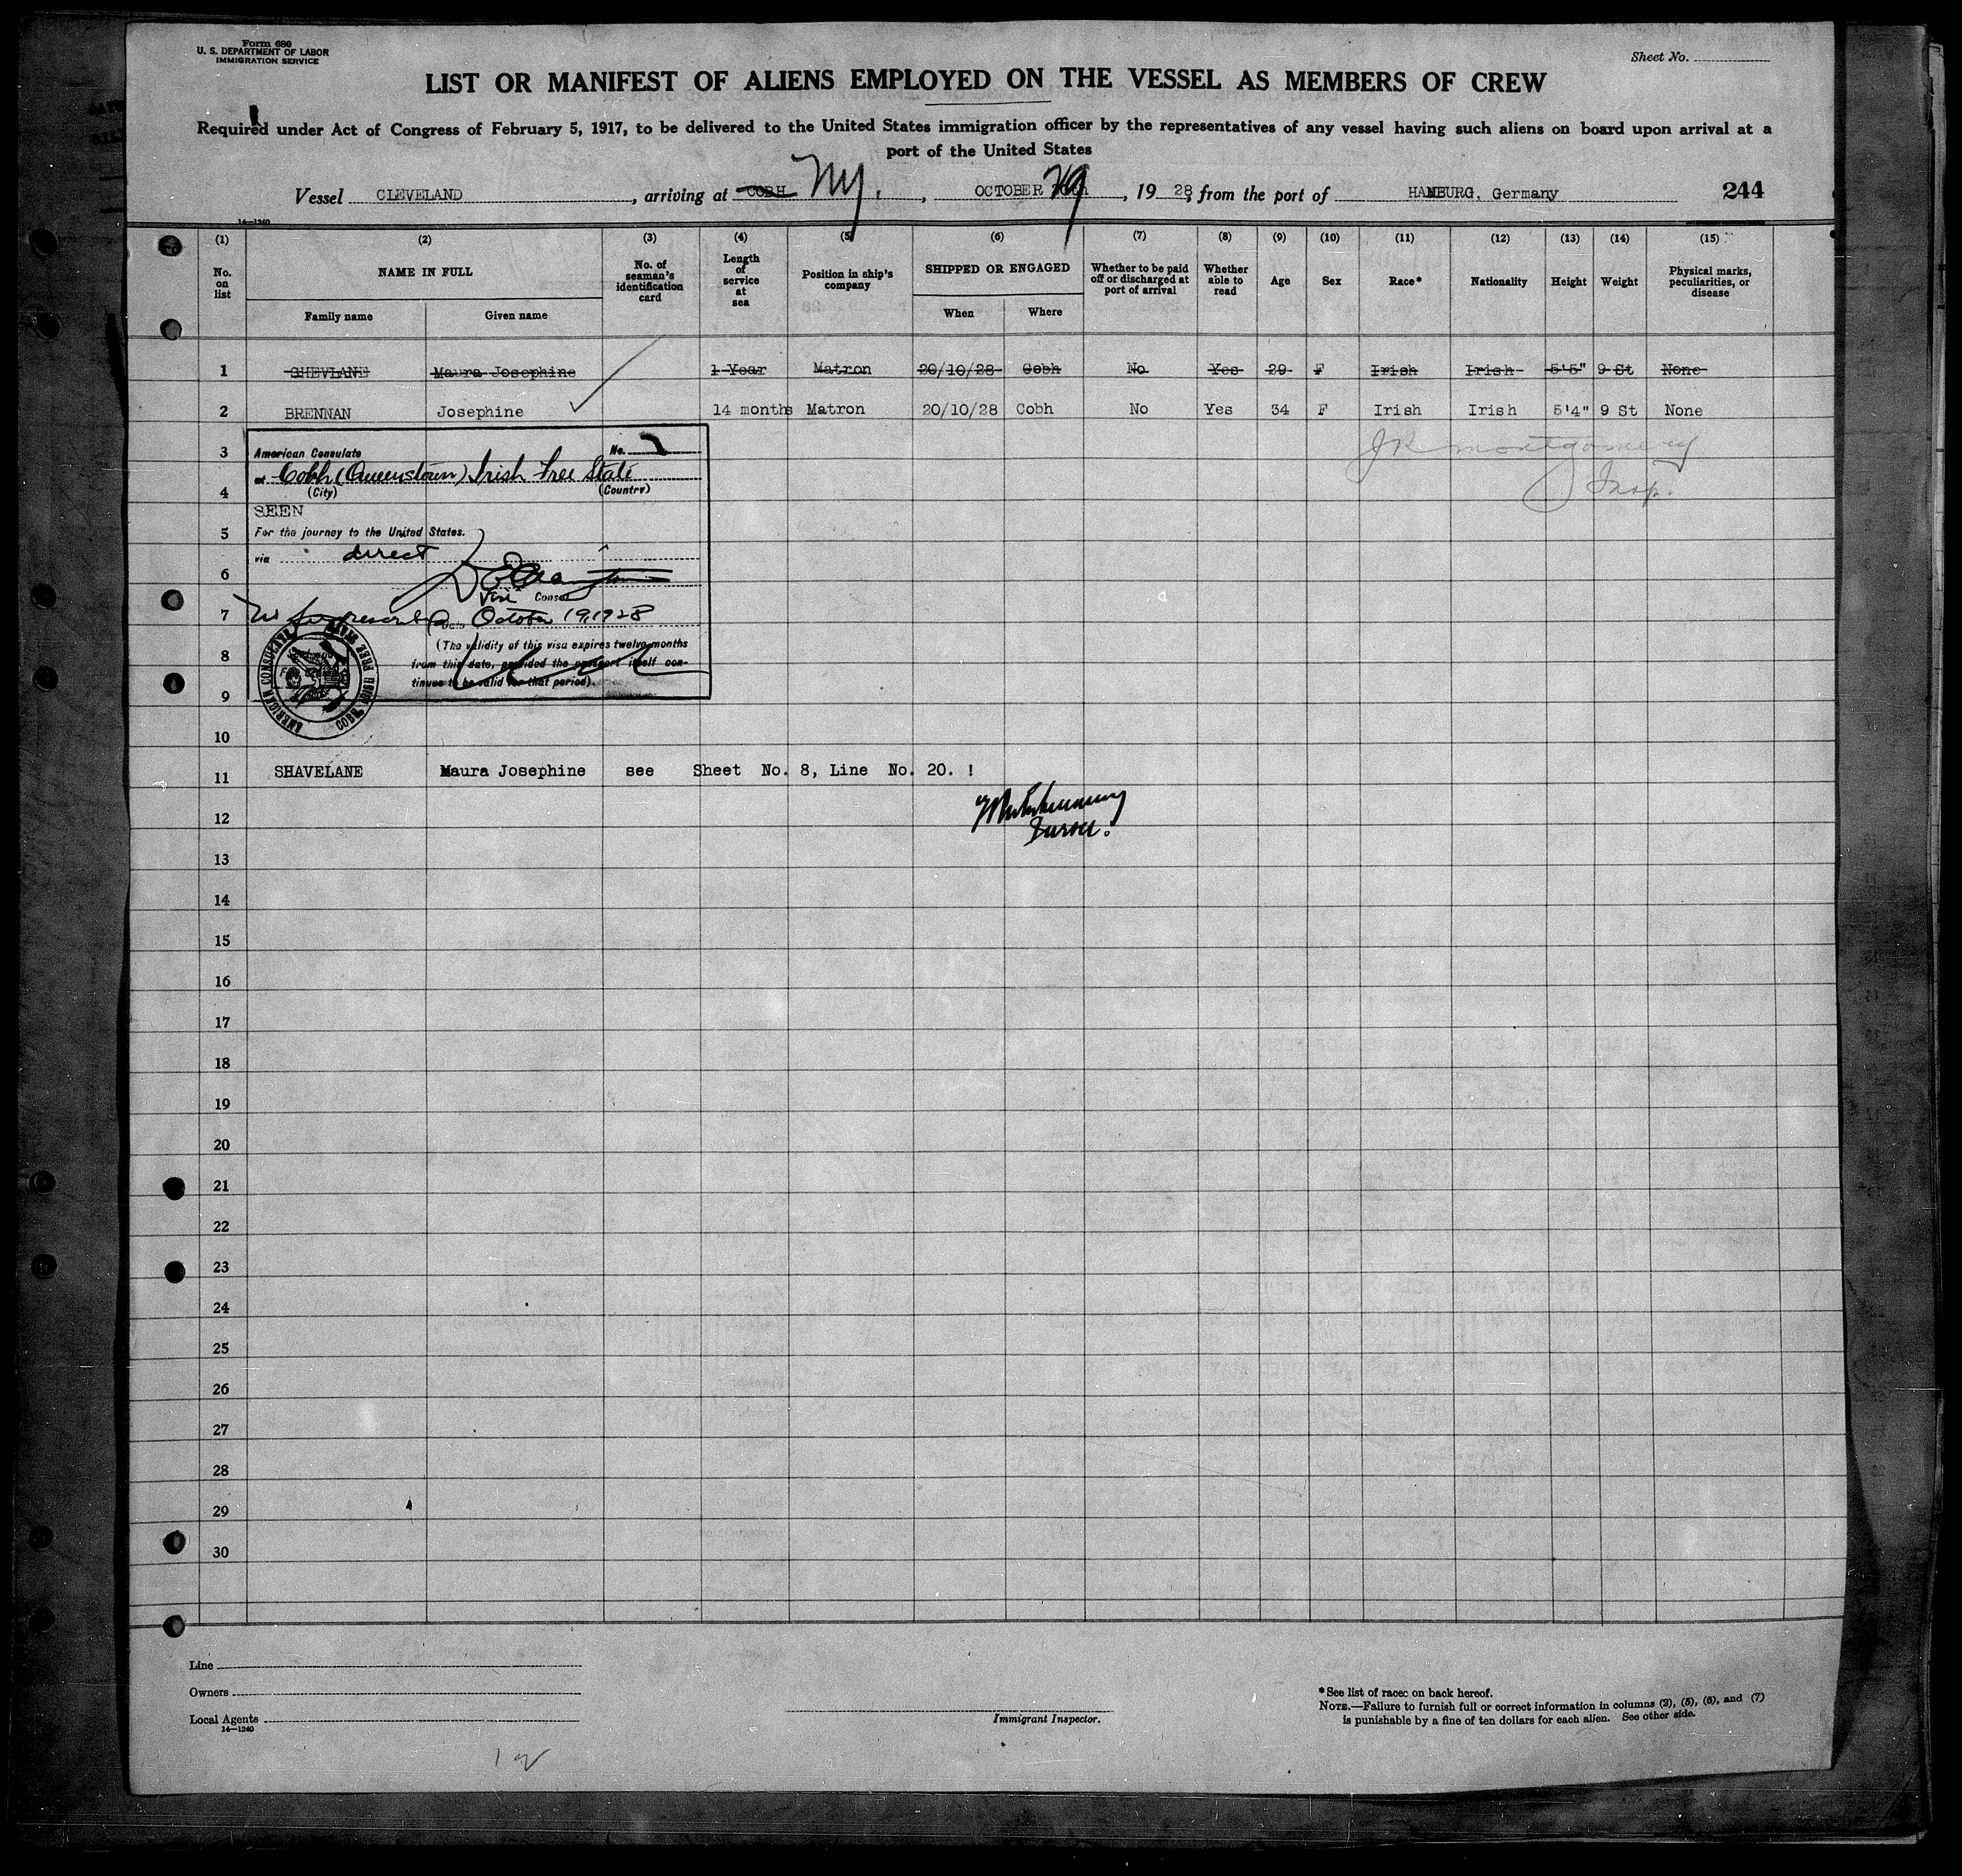 Form 680
U. S. DEPARTMENT OF LABOR
IMMIGRATION SERVICE
Sheet No.
LIST OR MANIFEST OF ALIENS EMPLOYED ON THE VESSEL AS MEMBERS OF CREW
Required under Act of Congress of February 5, 1917, to be delivered to the United States immigration officer by the representatives of any vessel having such aliens on board upon arrival at a
port of the United States
Vessel CLEVELAND, arriving at COBH NY., OCTOBER 29, 1928, from the port of HAMBURG, Germany 244
14—1240
(1) (2) (3) (4) (5) (6) (7) (8) (9) (10) (11) (12) (13) (14) (15)
No. on list NAME IN FULL No. of seaman's identification card Length of service at sea Position in ship's company SHIPPED OR ENGAGED Whether to be paid off or discharged at port of arrival Whether able to read Age Sex Race* Nationality Height Weight Physical marks, peculiarities, or disease
Family name Given name When Where
1 SHEVLANE Maura Josephine 1 Year Matron 20/10/28 Cobh No Yes 29 F Irish Irish 5'5" 9 St None
2 BRENNAN Josephine 14 months Matron 20/10/28 Cobh No Yes 34 F Irish Irish 5'4" 9 St None
JR Montgomery
Insp.
3
American Consulate No.
at Cobh (Queenstown) Irish Free State
4
(City) (Country)
SEEN
5
For the journey to the United States.
via direct
6
Vice Consul
7
No fee prescribed Date October 19, 1928
(The validity of this visa expires twelve months
8
from this date, provided the passport itself con-
tinues to be valid for that period).
9
AMERICAN CONSULATE
COBH IRISH FREE STATE
10
11 SHAVELANE Maura Josephine see Sheet No. 8, Line No. 20. !
12
13
14
15
16
17
18
19
20
21
22
23
24
25
26
27
28
29
30
Line
Owners
Local Agents
14—1240
Immigrant Inspector.
* See list of races on back hereof.
NOTE.—Failure to furnish full or correct information in columns (2), (5), (6), and (7)
is punishable by a fine of ten dollars for each alien. See other side.